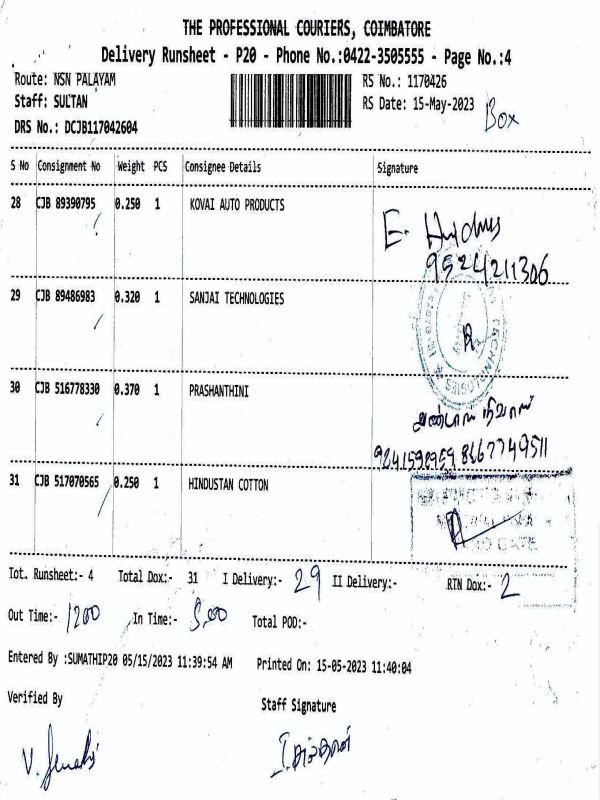 THE PROFESSIONAL COURIERS, COIMBATORE
Delivery Runsheet - P20 - Phone No.:0422-3505555 - Page No.:4
Route: NSN PALAYAM
RS No.: 1170426
Staff: SULTAN
RS Date: 15-May-2023
Box
DRS No.: DCJB117042604
S No Consignment No Weight PCS Consignee Details Signature
28 CJB 89390795 0.250 1 KOVAI AUTO PRODUCTS
E.
9524211306
29 CJB 89486983 0.320 1 SANJAI TECHNOLOGIES
TECHNOLOGIES
30 CJB 516778330 0.370 1 PRASHANTHINI
8667749511
31 CJB 517070565 0.250 1 HINDUSTAN COTTON
Tot. Runsheet:- 4 Total Dox:- 31 I Delivery:- 29 II Delivery:- RTN Dox:- 2
Out Time:- 1200 In Time:- 5.00 Total POD:-
Entered By :SUMATHIP20 05/15/2023 11:39:54 AM Printed On: 15-05-2023 11:40:04
Verified By
Staff Signature